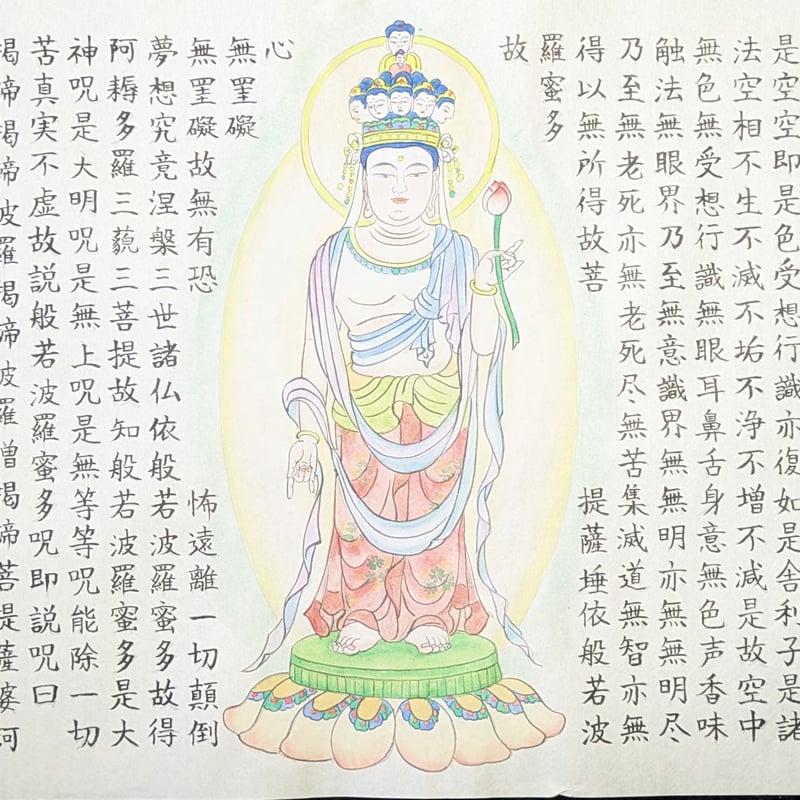 是空空即是色受想行識亦復如是舎利子是諸
法空相不生不滅不垢不浄不増不減是故空中
無色無受想行識無眼耳鼻舌身意無色声香味
触法無眼界乃至無意識界無無明亦無無明尽
乃至無老死亦無老死尽無苦集滅道無智亦無
得以無所得故菩
提薩埵依般若波
羅蜜多
故
心
無罣礙
無罣礙故無有恐
怖遠離一切顛倒
夢想究竟涅槃三世諸仏依般若波羅蜜多故得
阿耨多羅三藐三菩提故知般若波羅蜜多是大
神呪是大明呪是無上呪是無等等呪能除一切
苦真実不虚故説般若波羅蜜多呪即説呪曰
掲諦掲諦波羅掲諦波羅僧掲諦菩提薩婆訶